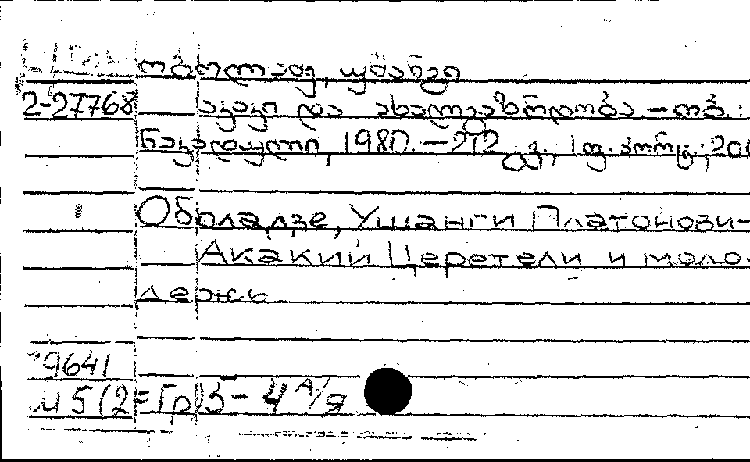 ობოლაძე, უშანგი
2-27768 აკაკი და ახალგაზრდობა – თბ.:
ნაკადული, 1980. – 272 გ., 1 ფ. პორტ.; 20
Оболадзе, Ушанги Платонови-
Акакий Церетели и моло-
дежь
9641
Ш5(2=Гр)5-4 А/я